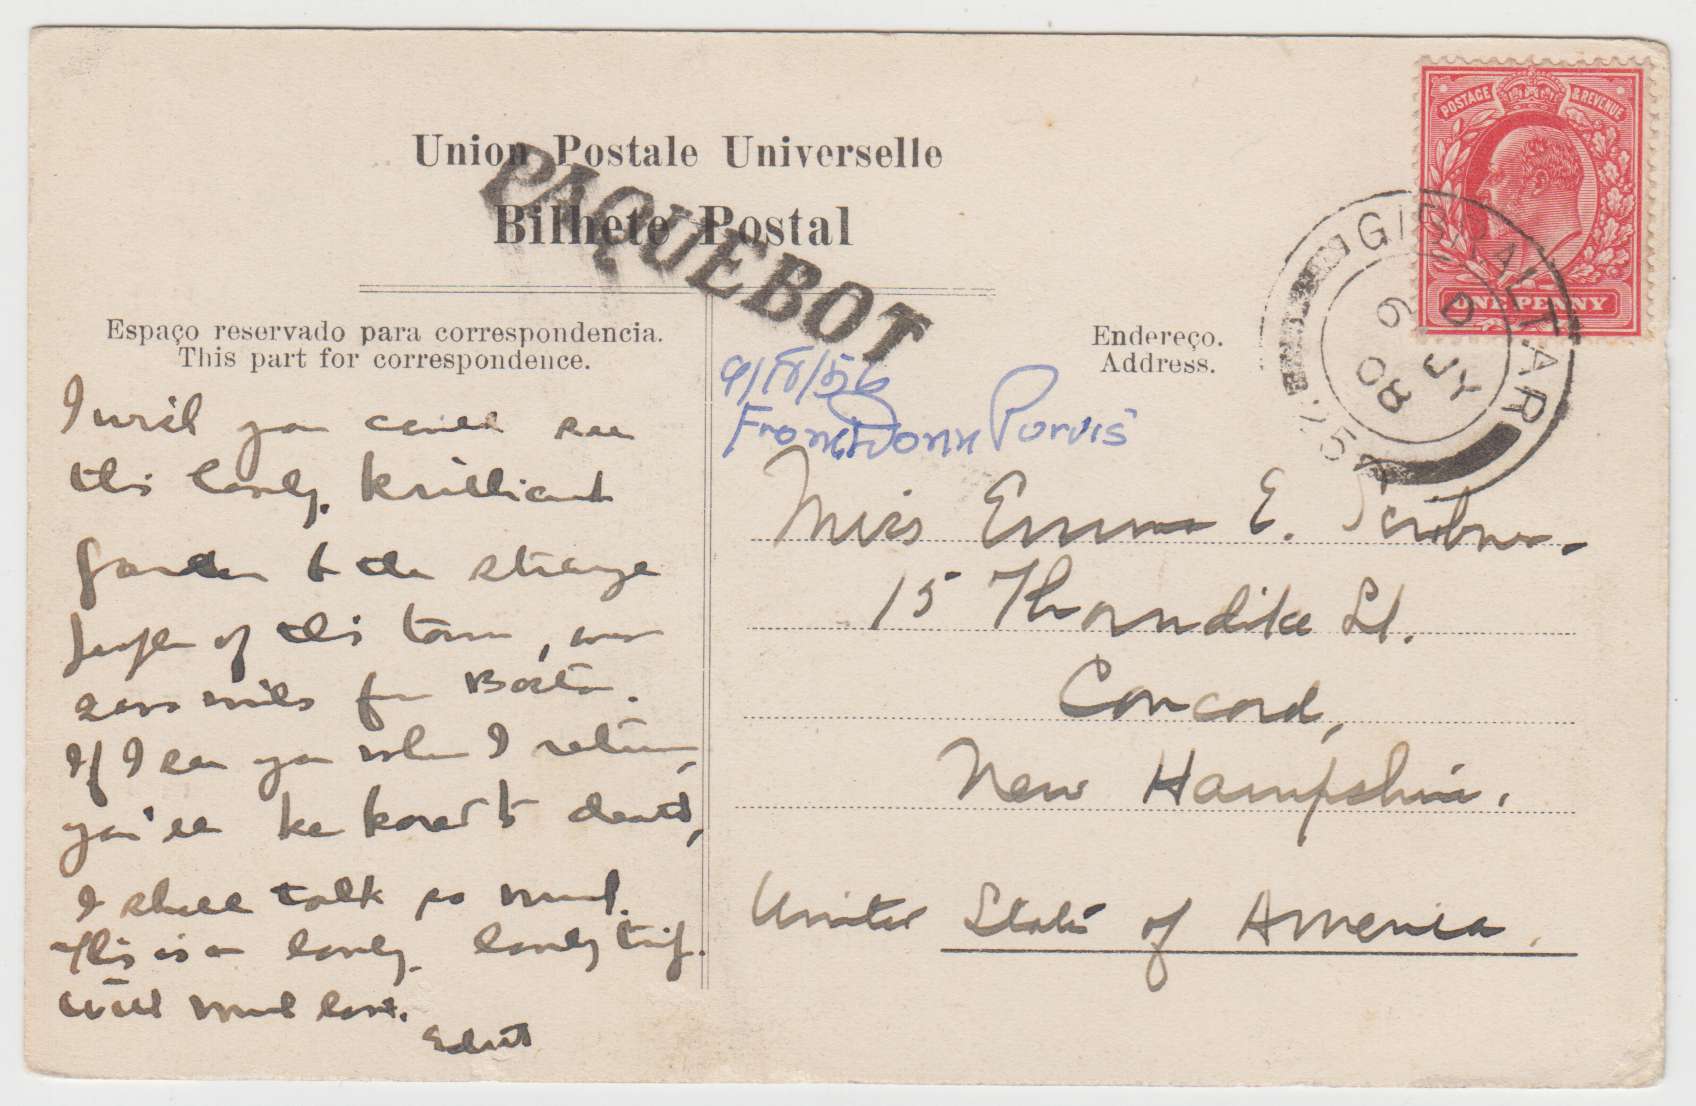 Union Postale Universelle
Bilhete Postal
PAQUEBOT
POSTAGE & REVENUE
ONE PENNY
GIBRALTAR
D
6 JY
08
Espaço reservado para correspondencia.
This part for correspondence.
Endereço.
Address.
I wish you could see
this lovely, brilliant
garden & the strange
people of this town, over
miles from Boston.
If I see you when I return,
you'll be bored to death,
I shall talk so much.
This is a lovely, lovely trip.
With much love.
Edith
9/18/56
From Donn Purvis
Miss Emma E. Scribner.
15 Thorndike St.
Concord,
New Hampshire.
United States of America.